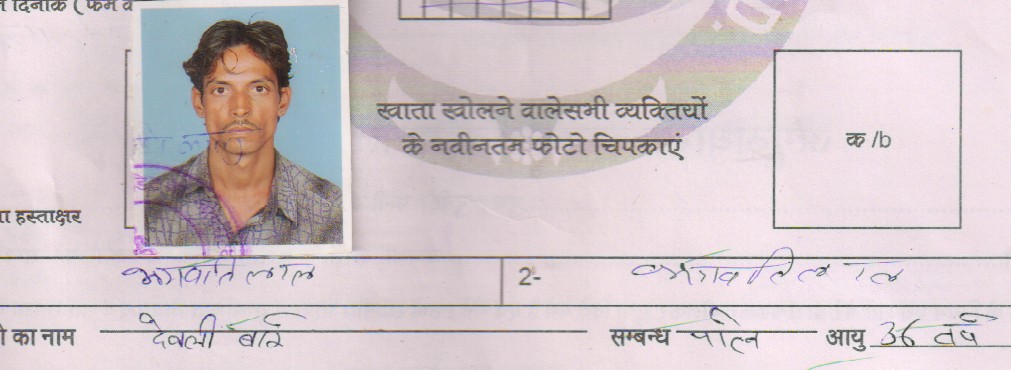 दिनांक ( फर्म
खाता खोलने वाले सभी व्यक्तियों
के नवीनतम फोटो चिपकाएं
क /b
हस्ताक्षर
भगवति लाल 2- भगवति लाल
का नाम देवली बाई सम्बन्ध पत्नि आयु 36 वर्ष